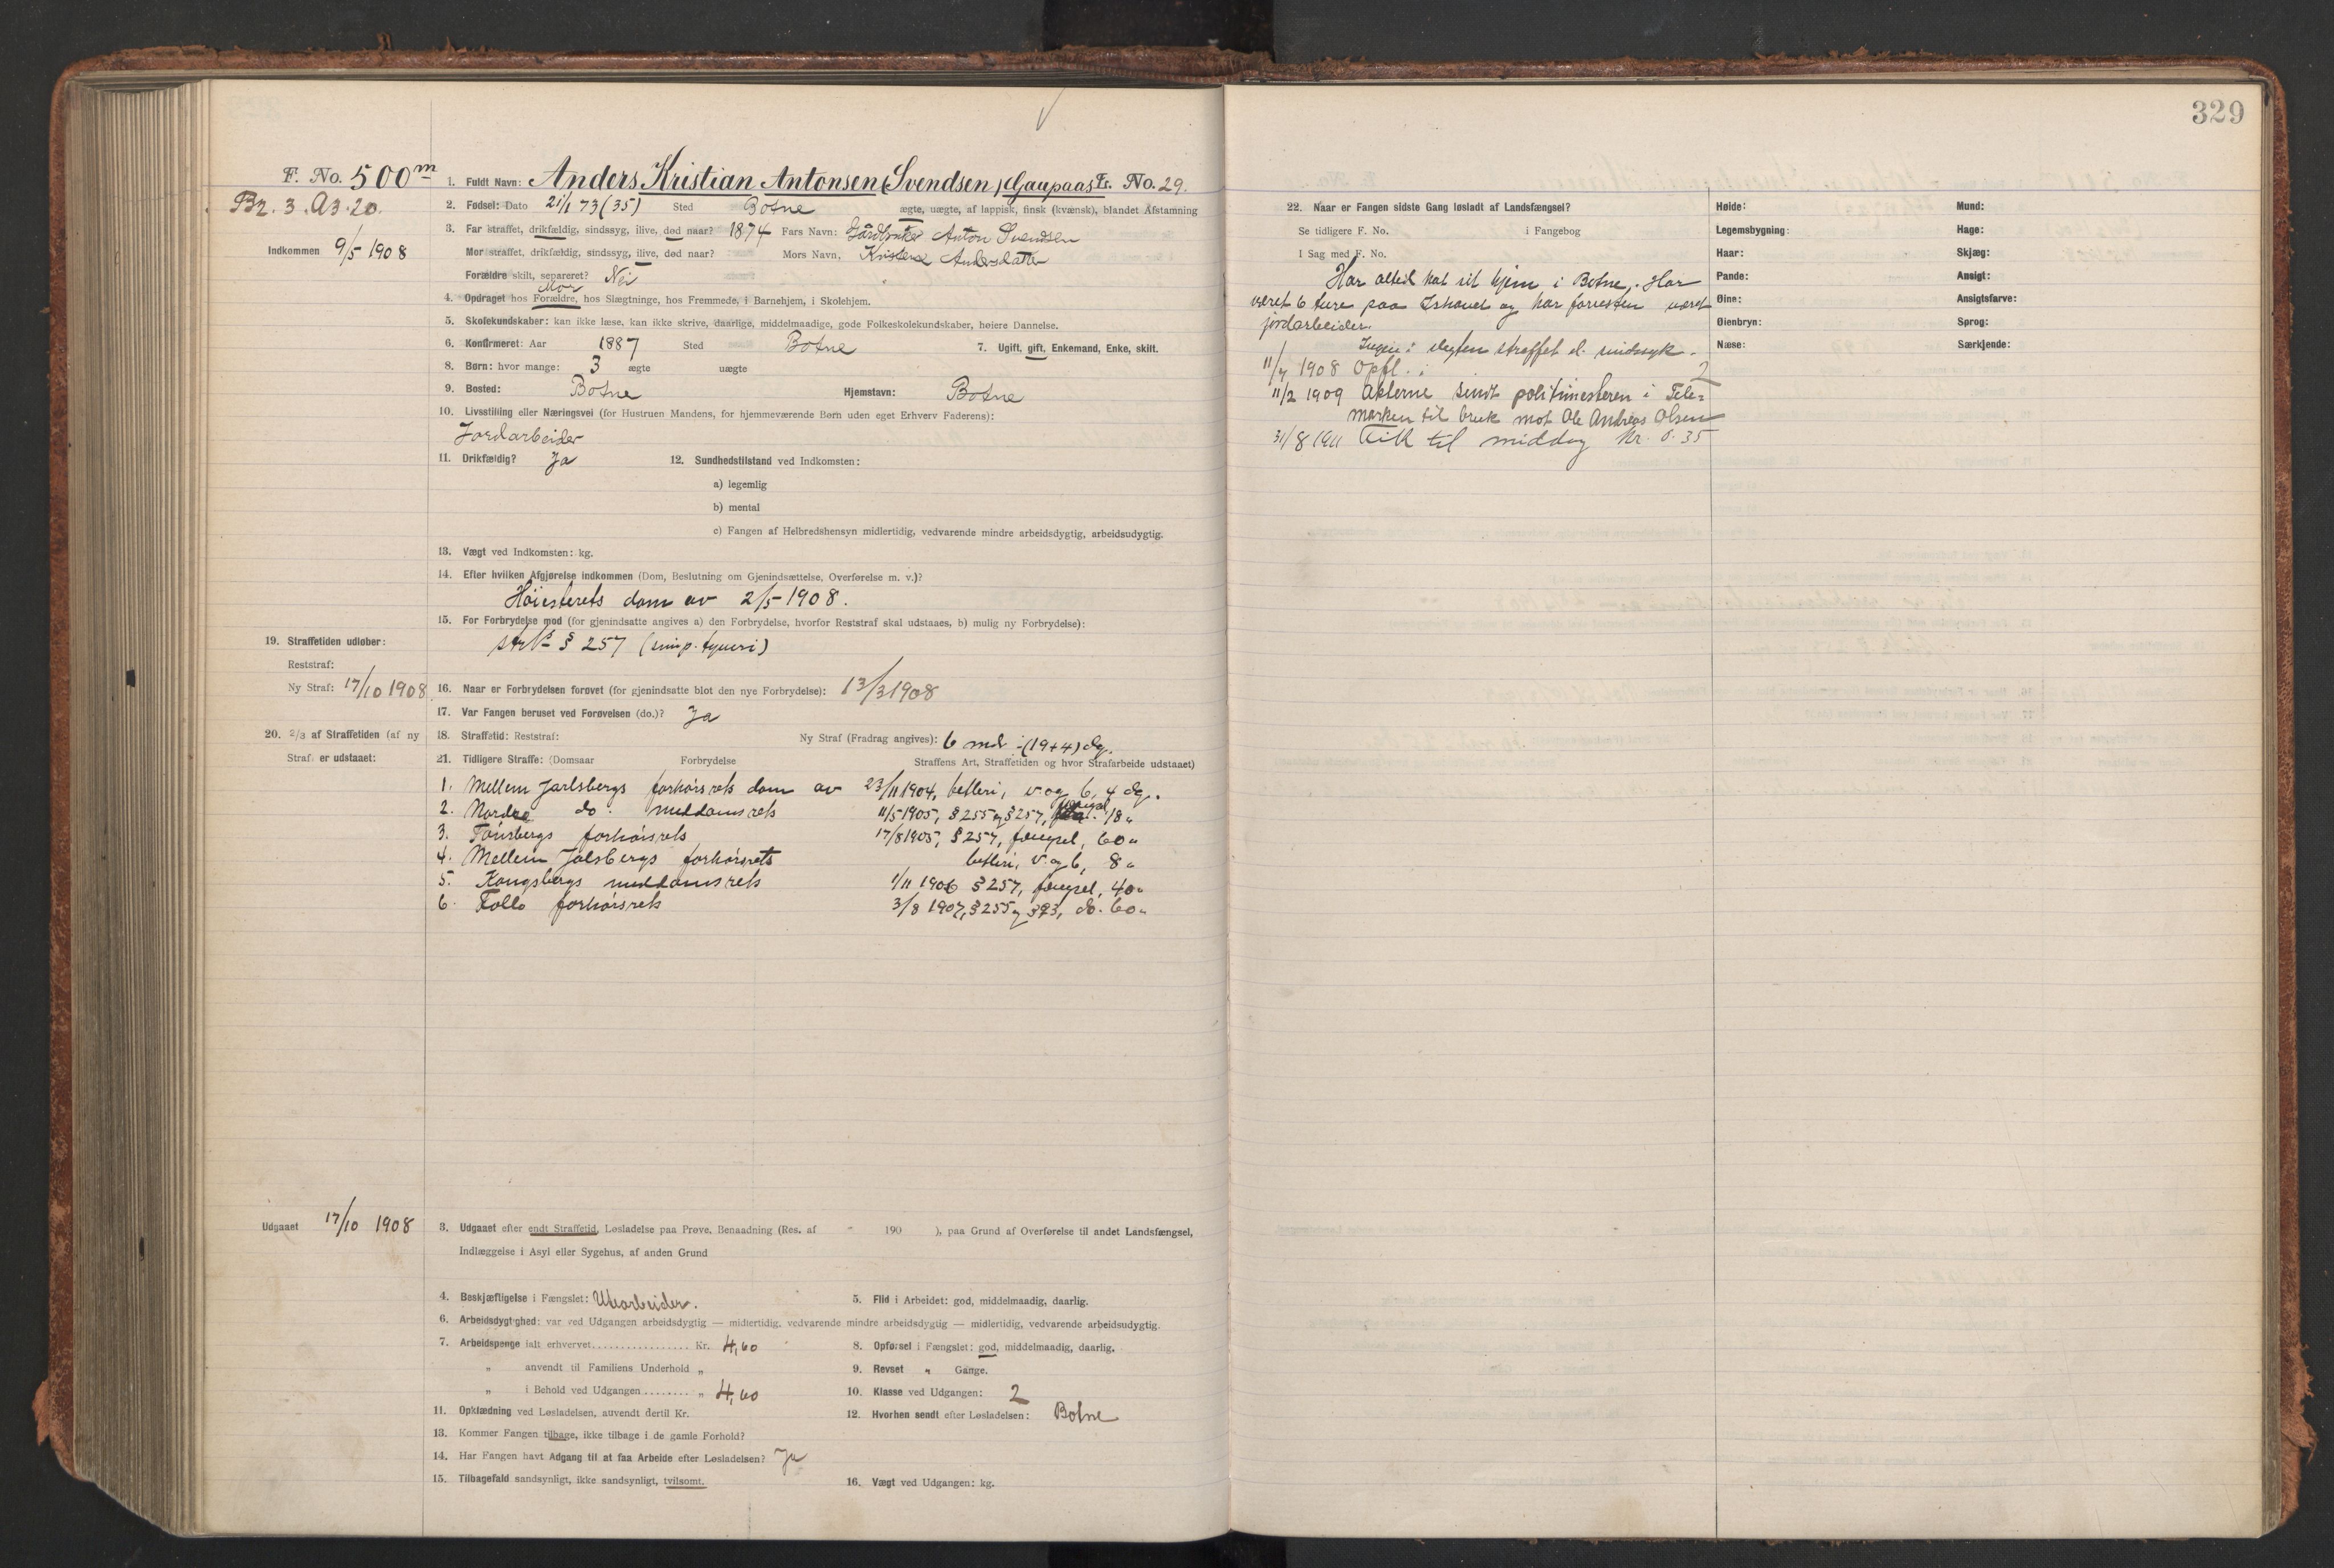 329
F. No. 500 m
1. Fuldt Navn: Anders Kristian Antonsen (Svendsen) Gaupaas Fr. No. 29.
Br. 3. A3.20.
2. Fødsel: Dato 21/1 73 (35) Sted Botne ægte, uægte, af lappisk, finsk (kvænsk), blandet Afstamning
Indkommen 9/5 1908
3. Far straffet, drikfældig, sindssyg, ilive, død naar? 1874 Fars Navn: Jordbruker Anton Svendsen
Mor straffet, drikfældig, sindssyg, ilive, død naar? Mors Navn, Kristene Andersdatter
Forældre skilt, separeret? Nei
Mor
4. Opdraget hos Forældre, hos Slægtninge, hos Fremmede, i Barnehjem, i Skolehjem.
5. Skolekundskaber: kan ikke læse, kan ikke skrive, daarlige, middelmaadige, gode Folkeskolekundskaber, høiere Dannelse.
6. Konfirmeret: Aar 1887 Sted Botne 7. Ugift, gift, Enkemand, Enke, skilt.
8. Børn: hvor mange: 3 ægte uægte
9. Bosted: Botne Hjemstavn: Botne
10. Livsstilling eller Næringsvei (for Hustruen Mandens, for hjemmeværende Børn uden eget Erhverv Faderens):
Jordarbeider
11. Drikfældig? Ja 12. Sundhedstilstand ved Indkomsten:
a) legemlig
b) mental
c) Fangen af Helbredshensyn midlertidig, vedvarende mindre arbeidsdygtig, arbeidsudygtig.
13. Vægt ved Indkomsten: kg.
14. Efter hvilken Afgjørelse indkommen (Dom, Beslutning om Gjenindsættelse, Overførelse m. v.)?
Høiesterets dom av 2/5 1908.
15. For Forbrydelse mod (for gjenindsatte angives a) den Forbrydelse, hvorfor Reststraf skal udstaaes, b) mulig ny Forbrydelse):
§ 257 (simp. tyveri)
19. Straffetiden udløber:
Reststraf:
Ny Straf: 17/10 1908
16. Naar er Forbrydelsen forøvet (for gjenindsatte blot den nye Forbrydelse): 13/3 1908
17. Var Fangen beruset ved Forøvelsen (do.)? Ja
20. 2/3 af Straffetiden (af ny
Straf) er udstaaet:
18. Straffetid: Reststraf: Ny Straf (Fradrag angives): 6 md ÷ (19+4) dg.
21. Tidligere Straffe: (Domsaar Forbrydelse Straffens Art, Straffetiden og hvor Strafarbeide udstaaet)
1. Mellem Jarlsbergs forhörsrets dom av 23/11 1904, betleri, v. og b, 4 dg.
2. Nordre do. meddomsrets 11/5 1905, § 255 og § 257, fængsel, 18 "
3. Tönsbergs forhörsrets 17/8 1905, § 257, fængsel, 60 "
4. Mellem Jalsbergs forhörsrets betleri, v. og b, 8 "
5. Kongsbergs meddomsrets 1/11 1906 § 257, fængsel, 40 "
6. Follo forhörsrets 3/8 1907, § 255 og 393, do. 60 "
Udgaaet 17/10 1908
3. Udgaaet efter endt Straffetid, Løsladelse paa Prøve, Benaadning (Res. af 190 ), paa Grund af Overførelse til andet Landsfængsel,
Indlæggelse i Asyl eller Sygehus, af anden Grund
4. Beskjæftigelse i Fængslet: Utearbeider. 5. Flid i Arbeidet: god, middelmaadig, daarlig.
6. Arbeidsdygtighed: var ved Udgangen arbeidsdygtig — midlertidig, vedvarende mindre arbeidsdygtig — midlertidig, vedvarende arbeidsudygtig.
7. Arbeidspenge ialt erhvervet................. Kr. 4,60 8. Opførsel i Fængslet: god, middelmaadig, daarlig.
" anvendt til Familiens Underhold " 9. Revset " Gange.
" i Behold ved Udgangen ........ " 4,60 10. Klasse ved Udgangen: 2
11. Opklædning ved Løsladelsen, anvendt dertil Kr. 12. Hvorhen sendt efter Løsladelsen: Botne
13. Kommer Fangen tilbage, ikke tilbage i de gamle Forhold?
14. Har Fangen havt Adgang til at faa Arbeide efter Løsladelsen? Ja
15. Tilbagefald sandsynligt, ikke sandsynligt, tvilsomt. 16. Vægt ved Udgangen: kg.
22. Naar er Fangen sidste Gang løsladt af Landsfængsel?
Se tidligere F. No. i Fangebog
I Sag med F. No.
Har altid hat sit hjem i Botne. Har
været 6 ture paa Ishavet og har forresten været
jordarbeider.
Ingen i slegten straffet el. sindssyk.
11/7 1908 Opfl. i 2
11/2 1909 Akterne sendt politimesteren i Tele=
marken til bruk mot Ole Andreas Olsen
31/8 1911 Fik til middag kr. 0.35
Høide: Mund:
Legemsbygning: Hage:
Haar: Skjæg:
Pande: Ansigt:
Øine: Ansigtsfarve:
Øienbryn: Sprog:
Næse: Særkjende: